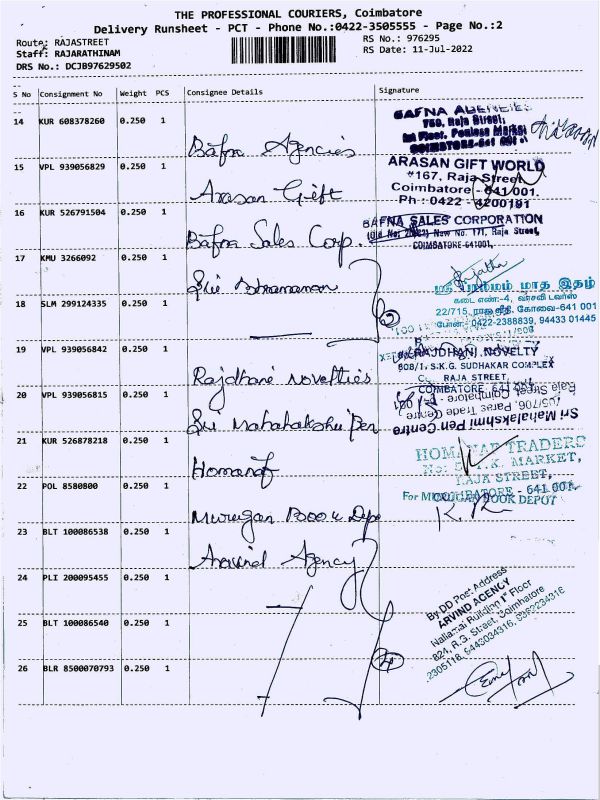 THE PROFESSIONAL COURIERS, Coimbatore
Delivery Runsheet - PCT - Phone No.:0422-3505555 - Page No.:2
Route: RAJASTREET
RS No.: 976295
Staff: RAJARATHINAM
RS Date: 11-Jul-2022
DRS No.: DCJB97629502
S No Consignment No Weight PCS Consignee Details Signature
14 KUR 608378260 0.250 1 Bafna Agencies
BAFNA AGENCIES
COIMBATORE-641 001
15 VPL 939056829 0.250 1 Arasan Gift
ARASAN GIFT WORLD
#167, Raja Street
Coimbatore - 641 001.
Ph : 0422 - 4200191
16 KUR 526791504 0.250 1 Bafna Sales Corp.
BAFNA SALES CORPORATION
New No. 171, Raja Street,
COIMBATORE-641001.
17 KMU 3266092 0.250 1 Sri
ஸ்ரீ பிரம்மம் மாத இதழ்
18 SLM 299124335 0.250 1
கடை எண்:-4,
22/715, ராஜ வீதி, கோவை-641 001
போன்: 0422-2386839, 94433 01445
19 VPL 939056842 0.250 1 Rajdhani Novelties
RAJDHANI NOVELTY
608/1, S.K.G. SUDHAKAR COMPLEX
RAJA STREET,
COIMBATORE
20 VPL 939056815 0.250 1 Sri Mahalakshmi Pen
Sri Mahalakshmi Pen Centre
105/706, Paras Trade Centre,
Raja Street, Coimbatore - 641 001
21 KUR 526878218 0.250 1 Homanaf
HOMANAF TRADERS
S.K. MARKET,
RAJA STREET,
COIMBATORE - 641 001.
22 POL 8580800 0.250 1 Murugan Book Depo
For MURUGAN BOOK DEPOT
23 BLT 100086538 0.250 1 Aravind Agency
24 PLI 200095455 0.250 1
By DD Post Address
ARVIND AGENCY
1st Floor
824, R.G. Street, Coimbatore
25 BLT 100086540 0.250 1
26 BLR 8500070793 0.250 1